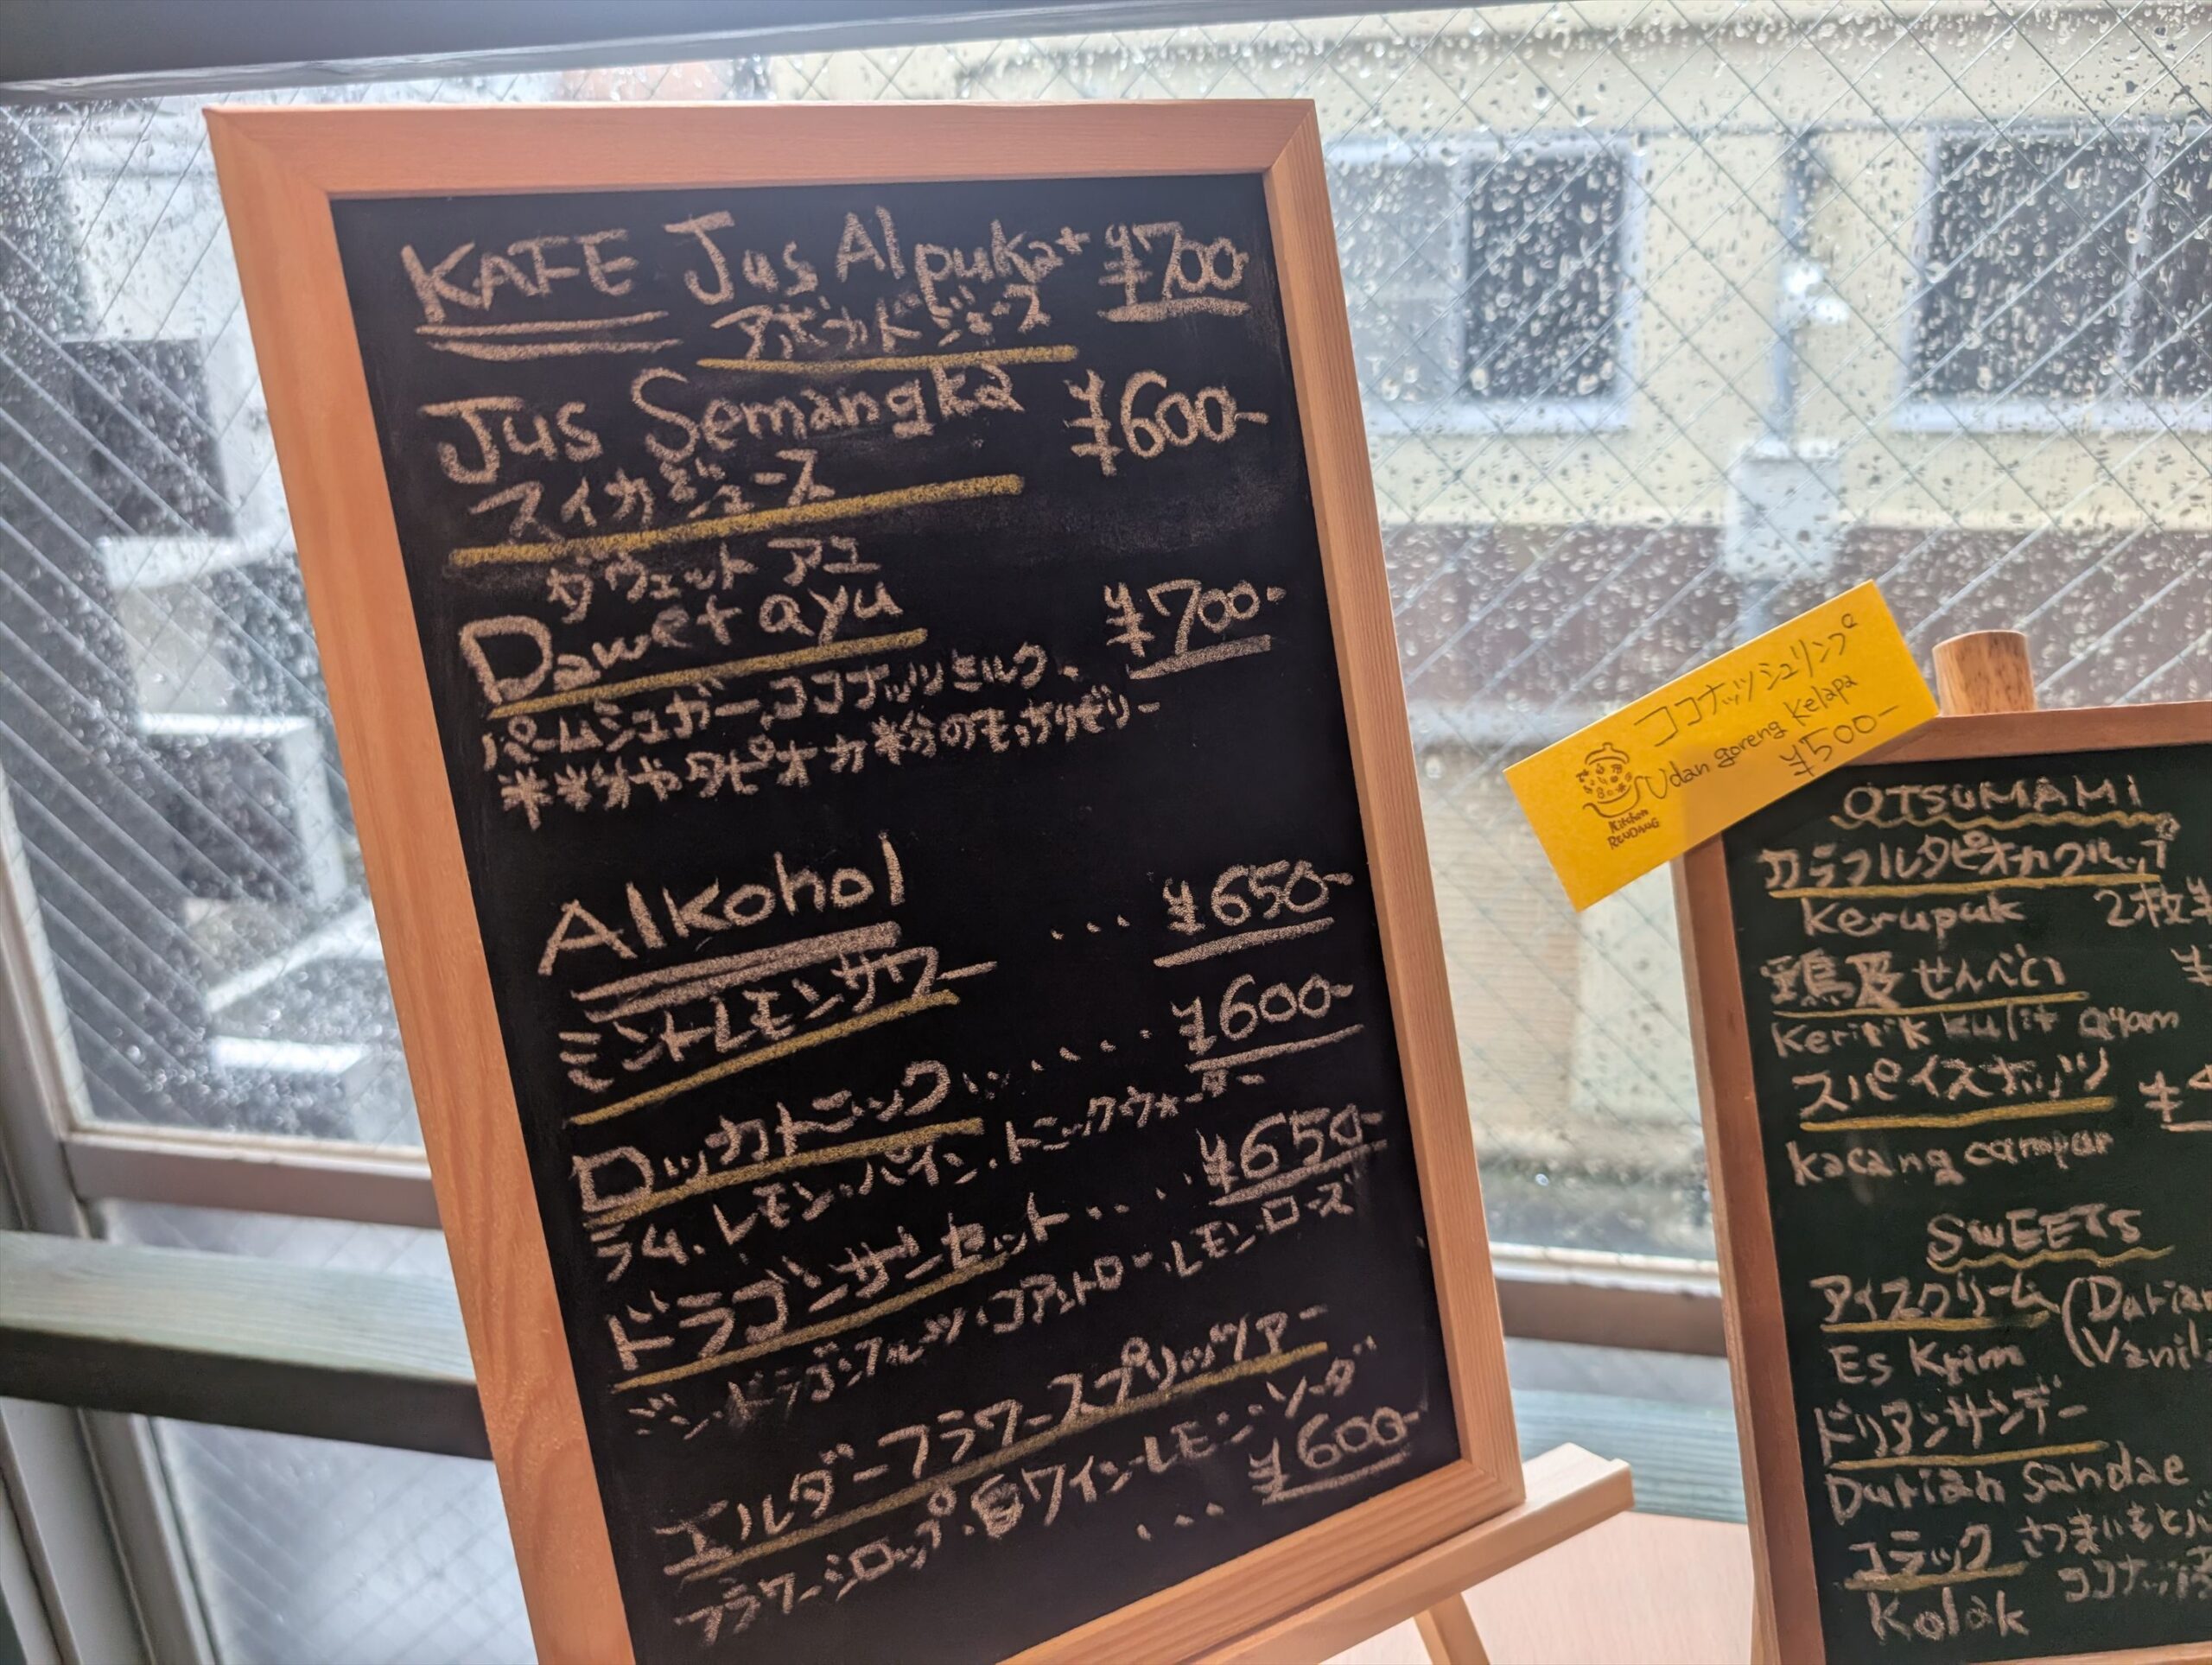 KAFE Jus Alpukat ¥700-
アボカドジュース
Jus Semangka ¥600-
スイカジュース
ダウェット アユ
Dawet ayu ¥700-
パームシュガー、ココナッツミルク、
米粉やタピオカ粉のもっちりゼリー
Alkohol
ミントレモンサワー ... ¥650-
ロッカトニック ...... ¥600-
ラム、レモン、パイン、トニックウォーター
ドラゴンサンセット .... ¥650-
ジン・ドラゴンフルーツ・コアントロー・レモン・ローズ
エルダーフラワースプリッツァー
フラワーシロップ・白ワイン・レモン・ソーダ
... ¥600-
ココナッツシュリンプ
Udan goreng Kelapa
¥500-
Kitchen
RENDANG
OTSUMAMI
カラフルタピオカクルップ
Kerupuk 2枚
鶏皮せんべい
Keripik kulit ayam
スパイスナッツ
kacang campur
SWEETS
アイスクリーム
Es Krim
ドリアンサンデー
Durian Sandae
コラック さつまいもと
ココナッツ
Kolak